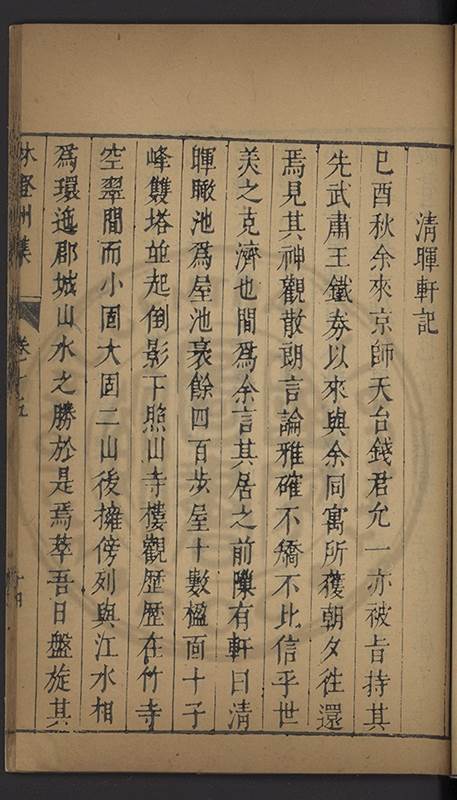 清暉軒記
已酉秋余來京師天台錢君允一亦被旨持其
先武肅王鐵劵以來與余同寓所獲朝夕徃還
焉見其神觀散朗言論雅確不矯不比信乎世
美之克濟也間爲余言其居之前隟有軒曰清
暉瞰池爲屋池袤餘四百步屋十數楹面十子
峰雙塔並起倒影下照山寺樓觀歷歷在竹寺
空翠間而小固大固二山後擁傍列與江水相
爲環迤郡城山水之勝於是焉萃吾日盤旋其
林登州集
卷十五